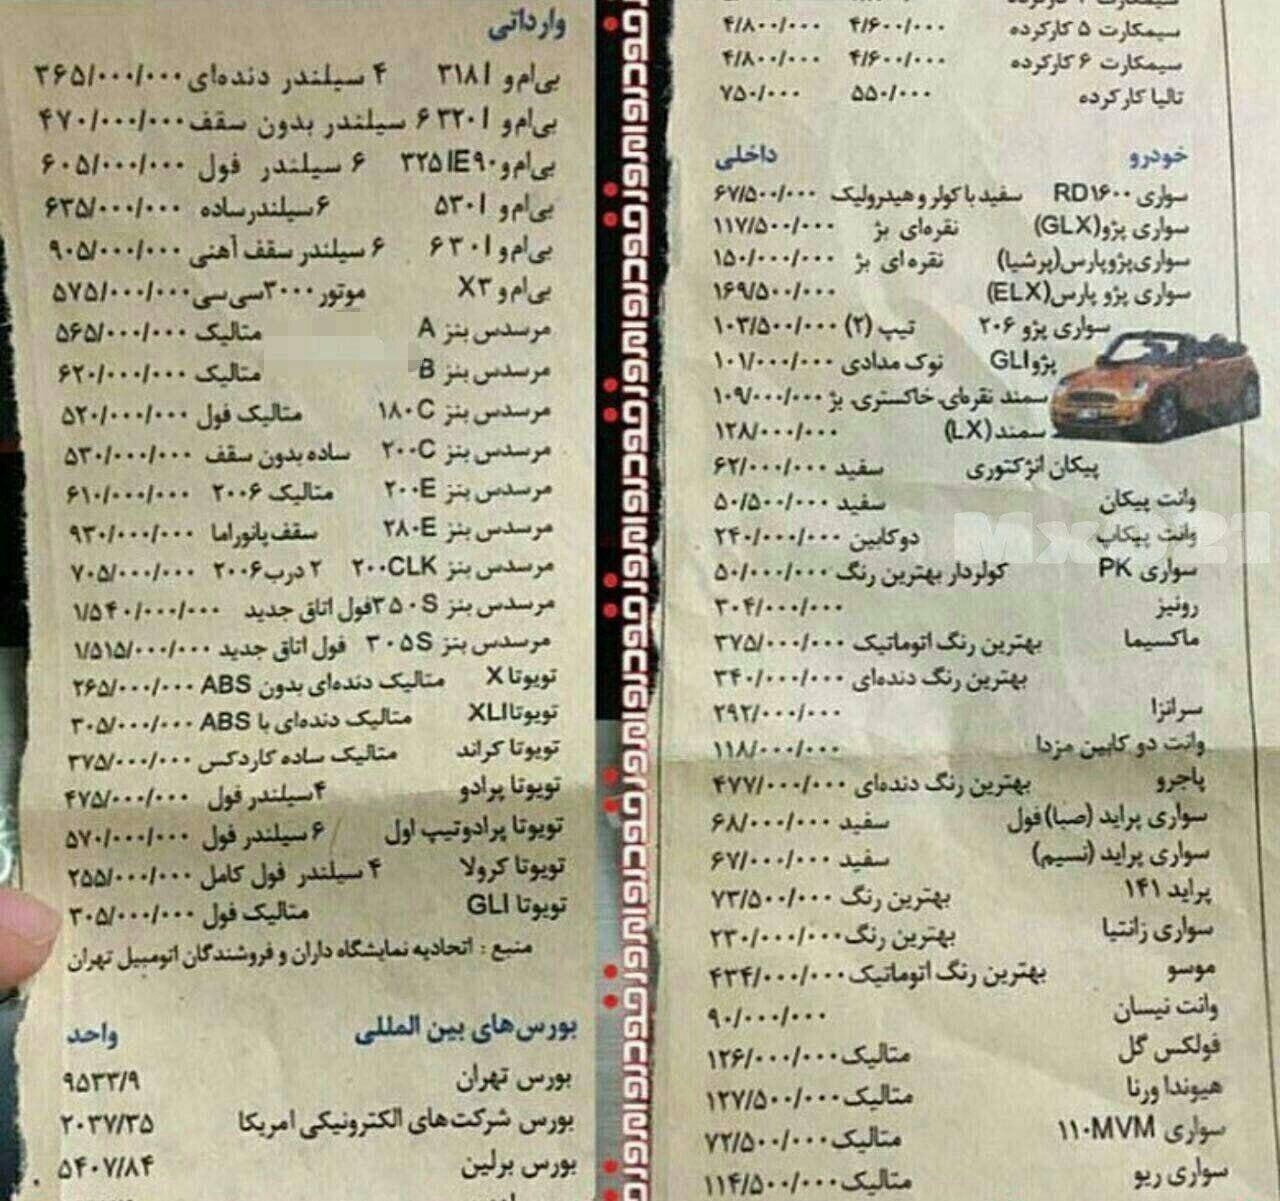 سیمکارت ۵ کارکرده ۴/۶۰۰/۰۰۰ ۴/۸۰۰/۰۰۰
سیمکارت ۶ کارکرده ۴/۶۰۰/۰۰۰ ۴/۸۰۰/۰۰۰
تالیا کارکرده ۵۵۰/۰۰۰ ۷۵۰/۰۰۰
خودرو داخلی
سواری RD۱۶۰۰ سفید با کولر و هیدرولیک ۶۷/۵۰۰/۰۰۰
سواری پژو(GLX) نقره‌ای بژ ۱۱۷/۵۰۰/۰۰۰
سواری پژو پارس(پرشیا) نقره‌ای بژ ۱۵۰/۰۰۰/۰۰۰
سواری پژو پارس(ELX) ۱۶۹/۵۰۰/۰۰۰
سواری پژو ۲۰۶ تیپ (۲) ۱۰۳/۵۰۰/۰۰۰
پژو GLI نوک مدادی ۱۰۱/۰۰۰/۰۰۰
سمند نقره‌ای، خاکستری، بژ ۱۰۹/۰۰۰/۰۰۰
سمند (LX) ۱۲۸/۰۰۰/۰۰۰
پیکان انژکتوری سفید ۶۲/۰۰۰/۰۰۰
وانت پیکان سفید ۵۰/۵۰۰/۰۰۰
وانت پیکاپ دوکابین ۲۴۰/۰۰۰/۰۰۰
سواری PK کولردار بهترین رنگ ۵۰/۰۰۰/۰۰۰
رونیز ۳۰۴/۰۰۰/۰۰۰
ماکسیما بهترین رنگ اتوماتیک ۳۷۵/۰۰۰/۰۰۰
بهترین رنگ دنده‌ای ۳۴۰/۰۰۰/۰۰۰
سرانزا ۲۹۲/۰۰۰/۰۰۰
وانت دو کابین مزدا ۱۱۸/۰۰۰/۰۰۰
پاجرو بهترین رنگ دنده‌ای ۴۷۷/۰۰۰/۰۰۰
سواری پراید (صبا) فول سفید ۶۸/۰۰۰/۰۰۰
سواری پراید (نسیم) سفید ۶۷/۰۰۰/۰۰۰
پراید ۱۴۱ بهترین رنگ ۷۳/۵۰۰/۰۰۰
سواری زانتیا بهترین رنگ ۲۳۰/۰۰۰/۰۰۰
موسو بهترین رنگ اتوماتیک ۴۳۴/۰۰۰/۰۰۰
وانت نیسان ۹۰/۰۰۰/۰۰۰
فولکس گل متالیک ۱۲۶/۰۰۰/۰۰۰
هیوندا ورنا متالیک ۱۲۷/۵۰۰/۰۰۰
سواری ۱۱۰MVM متالیک ۷۲/۵۰۰/۰۰۰
سواری ریو متالیک ۱۱۴/۵۰۰/۰۰۰
وارداتی
بی‌ام‌و ۳۱۸I ۴ سیلندر دنده‌ای ۳۶۵/۰۰۰/۰۰۰
بی‌ام‌و ۳۲۰I ۶ سیلندر بدون سقف ۴۷۰/۰۰۰/۰۰۰
بی‌ام‌و ۳۲۵IE۹۰ ۶ سیلندر فول ۶۰۵/۰۰۰/۰۰۰
بی‌ام‌و ۵۳۰I ۶ سیلندر ساده ۶۳۵/۰۰۰/۰۰۰
بی‌ام‌و ۶۳۰I ۶ سیلندر سقف آهنی ۹۰۵/۰۰۰/۰۰۰
بی‌ام‌و X۳ موتور ۳۰۰۰ سی‌سی ۵۷۵/۰۰۰/۰۰۰
مرسدس بنز A متالیک ۵۶۵/۰۰۰/۰۰۰
مرسدس بنز B متالیک ۶۲۰/۰۰۰/۰۰۰
مرسدس بنز ۱۸۰C متالیک فول ۵۲۰/۰۰۰/۰۰۰
مرسدس بنز ۲۰۰C ساده بدون سقف ۵۳۰/۰۰۰/۰۰۰
مرسدس بنز ۲۰۰E متالیک ۲۰۰۶ ۶۱۰/۰۰۰/۰۰۰
مرسدس بنز ۲۸۰E سقف پانوراما ۹۳۰/۰۰۰/۰۰۰
مرسدس بنز ۲۰۰CLK ۲ درب ۲۰۰۶ ۷۰۵/۰۰۰/۰۰۰
مرسدس بنز ۳۵۰S فول اتاق جدید ۱/۵۴۰/۰۰۰/۰۰۰
مرسدس بنز ۳۰۵S فول اتاق جدید ۱/۵۱۵/۰۰۰/۰۰۰
تویوتا X متالیک دنده‌ای بدون ABS ۲۶۵/۰۰۰/۰۰۰
تویوتا XLI متالیک دنده‌ای با ABS ۳۰۵/۰۰۰/۰۰۰
تویوتا کراند متالیک ساده کاردکس ۳۷۵/۰۰۰/۰۰۰
تویوتا پرادو ۴ سیلندر فول ۴۷۵/۰۰۰/۰۰۰
تویوتا پرادو تیپ اول ۶ سیلندر فول ۵۷۰/۰۰۰/۰۰۰
تویوتا کرولا ۴ سیلندر فول کامل ۲۵۵/۰۰۰/۰۰۰
تویوتا GLI متالیک فول ۳۰۵/۰۰۰/۰۰۰
منبع : اتحادیه نمایشگاه داران و فروشندگان اتومبیل تهران
بورس‌های بین المللی واحد
بورس تهران ۹۵۳۳/۹
بورس شرکت‌های الکترونیکی امریکا ۲۰۳۷/۳۵
بورس برلین ۵۴۰۷/۸۴